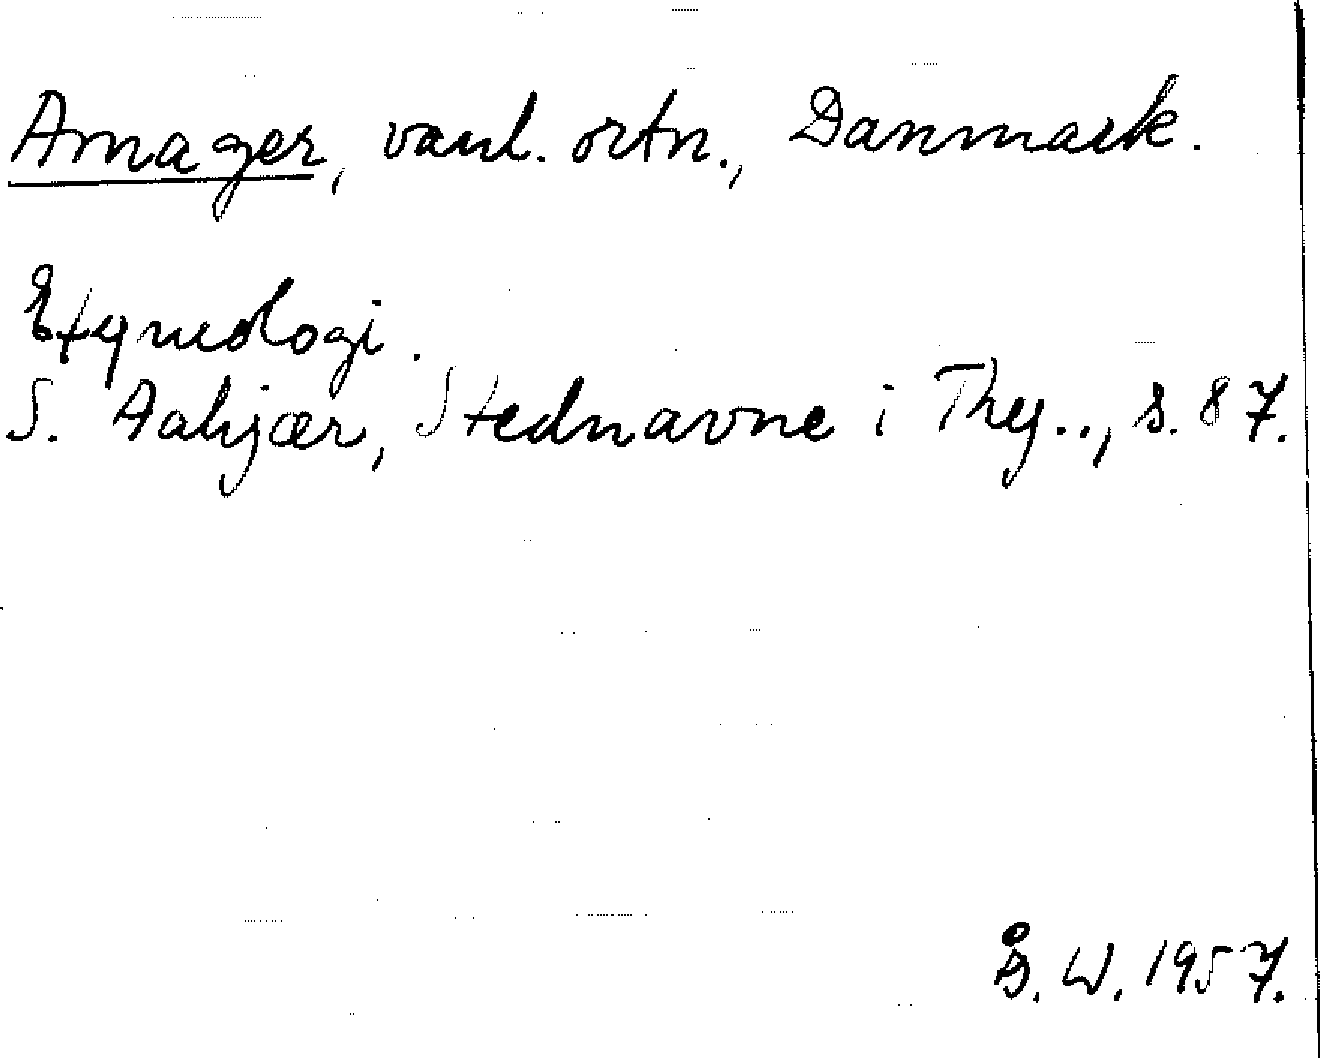 Amager, vanl. ortn., Danmark.
Etymologi.
S. Aakjær, Stednavne i Thy.., s. 87.
Å. W. 1957.